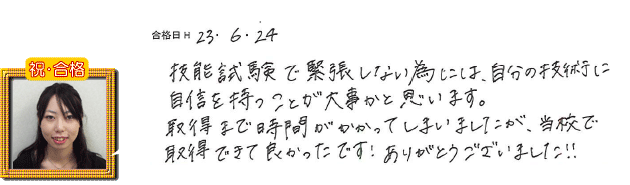 合格日 H 23.6.24
祝・合格
技能試験で緊張しない為には、自分の技術に
自信を持つことが大事かと思います。
取得まで時間がかかってしまいましたが、当校で
取得できて良かったです!ありがとうございました!!